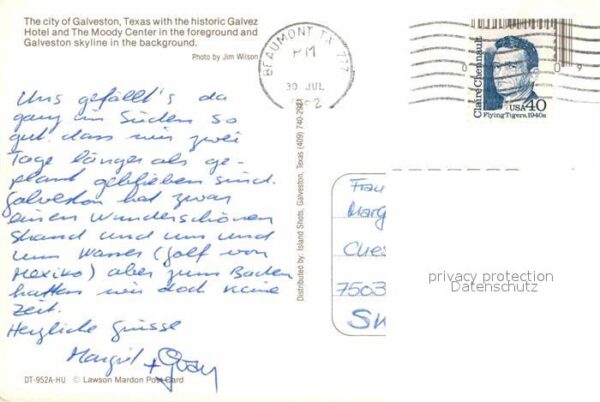 The city of Galveston, Texas with the historic Galvez
Hotel and The Moody Center in the foreground and
Galveston skyline in the background.
Photo by Jim Wilson
BEAUMONT TX 777
PM
30 JUL
Claire Chennault
USA 40
Flying Tigers, 1940s
Uns gefällt's da
ganz im Süden so
gut dass wir zwei
Tage länger als ge-
plant geblieben sind.
Galveston hat zwar
einen wunderschönen
Strand und um und
um Wasser (Golf von
Mexiko) aber zum Baden
hatten wir doch keine
Zeit.
Herzliche Grüsse
Margrit +
DT-952A-HU © Lawson Mardon Post Card
Distributed by: Island Shots, Galveston, Texas (409) 740-2921
Frau
Marg
7503
privacy protection
Datenschutz